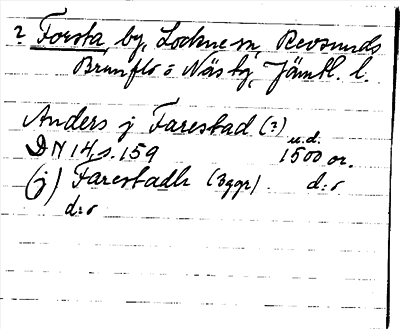 ? Forsta, by, Lockne sn, Revsunds
Brunflo o Näs tg, Jämtl. l.
Anders j Farestad (?)
u.d.
DN 14, s. 159 1500 or.
(j) Farestadh (3ggr). d:o
d:o